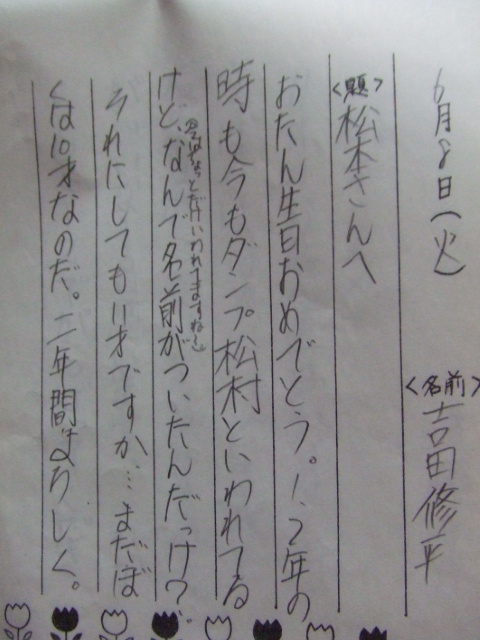 6月8日(火)
<名前>吉田修平
<題>松本さんへ
おたん生日おめでとう。1、2年の
時も今もダンプ松村といわれてる
けど、なんで名前がついたんだっけ?
それにしても11才ですか…まだぼ
くは10才なのだ。二年間よろしく。